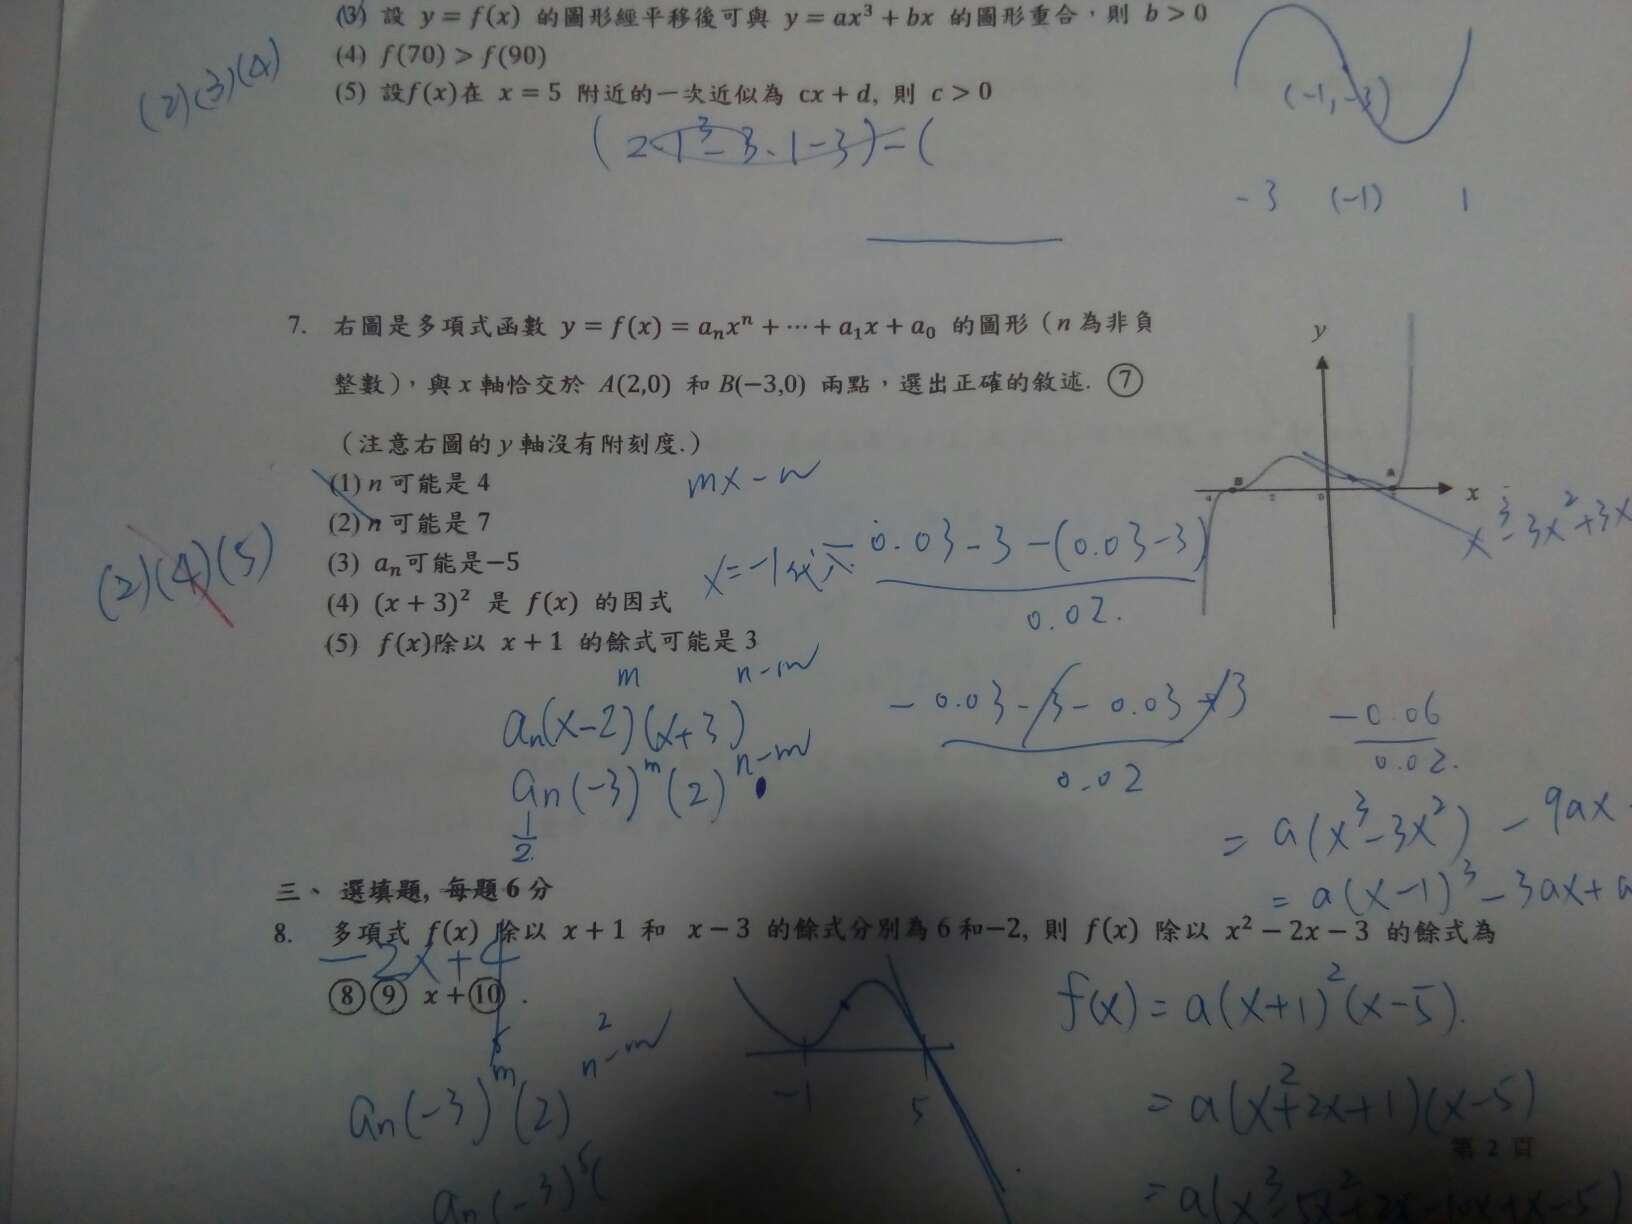 (3) 設 y = f(x) 的圖形經平移後可與 y = ax³ + bx 的圖形重合，則 b > 0
(4) f(70) > f(90)
(5) 設f(x)在 x = 5 附近的一次近似為 cx + d, 則 c > 0
(2)(3)(4)
(2·1³-3·1-3)=(
(-1,-3)
-3 (-1) 1
7. 右圖是多項式函數 y = f(x) = aₙxⁿ + ⋯ + a₁x + a₀ 的圖形（n 為非負
整數），與 x 軸恰交於 A(2,0) 和 B(−3,0) 兩點，選出正確的敘述. ⑦
（注意右圖的 y 軸沒有附刻度.）
(1) n 可能是 4
(2) n 可能是 7
(3) aₙ可能是−5
(4) (x + 3)² 是 f(x) 的因式
(5) f(x)除以 x + 1 的餘式可能是 3
(2)(4)(5)
y
x
B
A
0
mx-n
x³-3x²+3x
x=-1
0.03-3-(0.03-3)
0.02.
-0.03-3-0.03+3
0.02
-0.06
0.02.
m n-m
aₙ(x-2)(x+3)
aₙ(-3)ᵐ(2)ⁿ⁻ᵐ
1
2
=a(x³-3x²)-9ax
=a(x-1)³-3ax+a
三、 選填題, 每題 6 分
8. 多項式 f(x) 除以 x + 1 和 x − 3 的餘式分別為 6 和−2, 則 f(x) 除以 x² − 2x − 3 的餘式為
-2x+4
⑧⑨ x+⑩ .
f(x)=a(x+1)²(x-5).
-1 5
2
aₙ(-3)ᵐ(2)ⁿ⁻ᵐ
=a(x²+2x+1)(x-5)
第 2 頁
aₙ(-3)⁵(